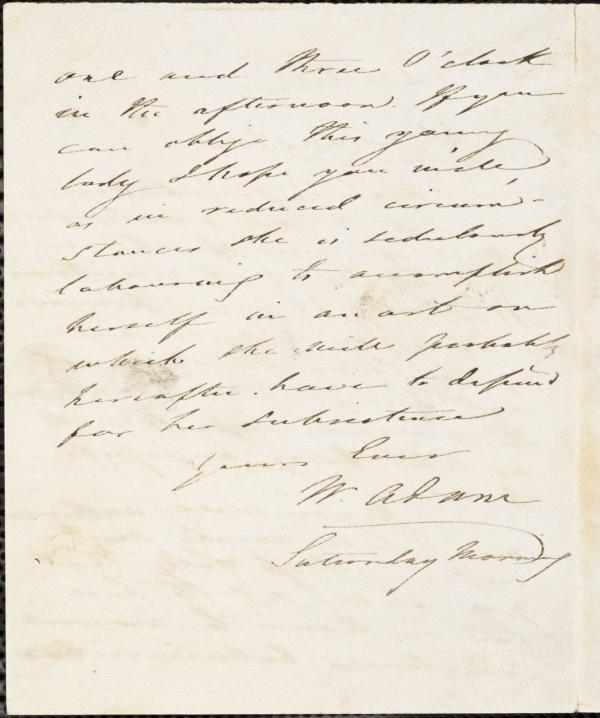 one and three O'clock
in the afternoon. If you
can oblige this young
lady I hope you will,
as in reduced circum-
stances she is sedulously
labouring to accomplish
herself in an art on
which she will probably
hereafter have to depend
for her subsistence
Yours Ever
W. Adam
Saturday Morning